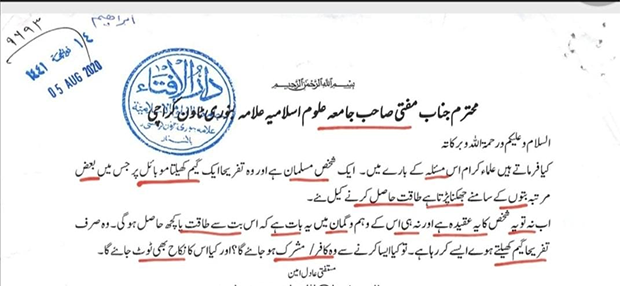 ابراہیم
۹۶۹۳
۱٤ ذوالحجۃ ۱٤٤۱
05 AUG 2020
دار الافتاء
بسم اللہ الرحمٰن الرحیم
محترم جناب مفتی صاحب جامعہ علوم اسلامیہ علامہ بنوری ٹاون کراچی
السلام و علیکم ورحمۃ اللہ وبرکاتہ
کیا فرماتے ہیں علماء کرام اس مسئلہ کے بارے میں۔ ایک شخص مسلمان ہے اور وہ تفریحا ایک گیم کھیلتا موبائل پر جس میں بعض
مرتبہ بتوں کے سامنے جھکنا پڑتا ہے طاقت حاصل کرنے کیل ئے۔
اب نہ تو یہ شخص کا یہ عقیدہ ہے اور نہ ہی اس کے وہم و گمان میں یہ بات ہے کہ اس بت سے طاقت یا کچھ حاصل ہوگی۔ وہ صرف
تفریحا گیم کھیلتے ہوے ایسے کر رہا ہے۔ تو کیا ایسا کرنے سے وہ کافر/ مشرک ہو جائے گا؟ اور کیا اس کا نکاح بھی ٹوٹ جائے گا؟
مستفتی عادل امین